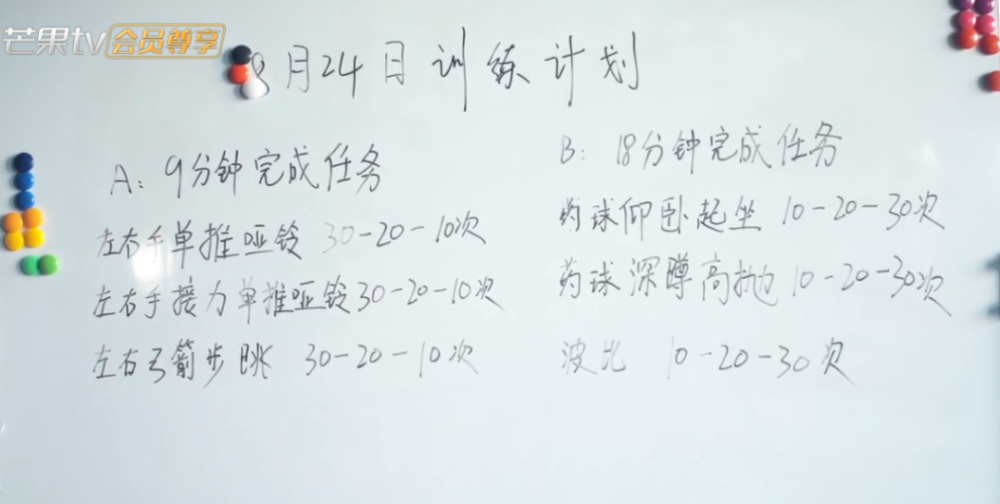 芒果tv会员尊享
8月24日训练计划
A：9分钟完成任务
左右手单推哑铃 30-20-10次
左右手接力单推哑铃30-20-10次
左右弓箭步跳 30-20-10次
B：18分钟完成任务
药球仰卧起坐 10-20-30次
药球深蹲高抛 10-20-30次
波比 10-20-30次